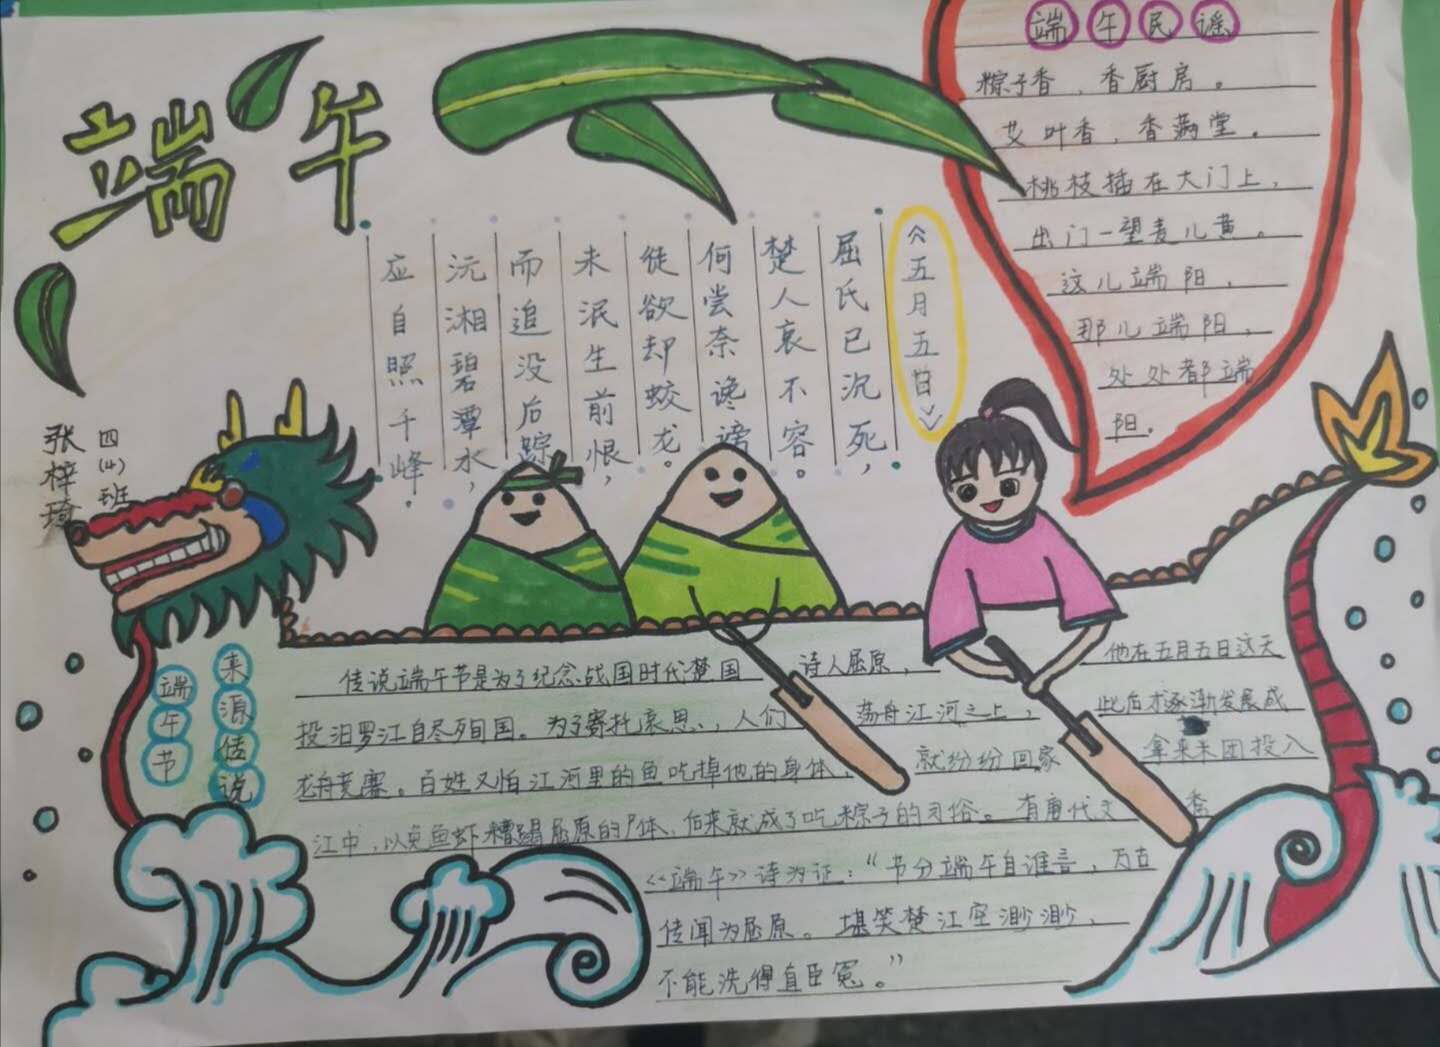 端午
端午民谣
粽子香，香厨房。
艾叶香，香满堂。
桃枝插在大门上，
出门一望麦儿黄。
这儿端阳，
那儿端阳，
处处都端
阳。
《五月五日》
屈氏已沉死，
楚人哀不容。
何尝奈谗谤
徒欲却蛟龙。
未泯生前恨，
而追没后踪
沅湘碧潭水，
应自照千峰。
四(4)班
张梓琦
端午节
来源传说
传说端午节是为了纪念战国时代楚国 诗人屈原， 他在五月五日这天
投汨罗江自尽殉国。为了寄托哀思，人们 荡舟江河之上， 此后才逐渐发展成
龙舟竞赛。百姓又怕江河里的鱼吃掉他的身体， 就纷纷回家 拿来米团投入
江中，以免鱼虾糟蹋屈原的尸体，后来就成了吃粽子的习俗。有唐代文秀
《端午》诗为证：“节分端午自谁言，万古
传闻为屈原。堪笑楚江空渺渺，
不能洗得直臣冤。”